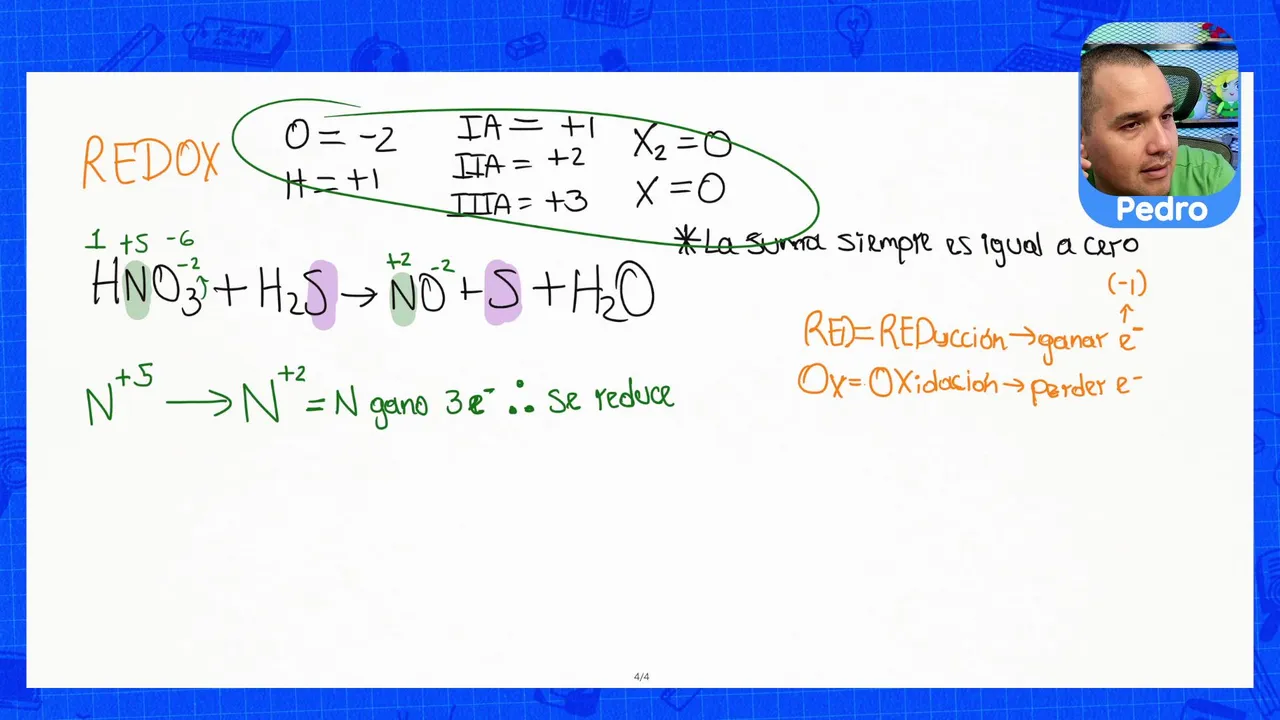 REDOX
O = -2
H = +1
IA = +1
IIA = +2
IIIA = +3
X₂ = 0
X = 0
Pedro
*La suma siempre es igual a cero
1 +5 -6
-2
+2 -2
HNO₃ + H₂S → NO + S + H₂O
(-1)
↑
RED = REDucción → ganar e⁻
OX = OXidación → perder e⁻
N⁺⁵ → N⁺² = N gano 3e⁻ ∴ se reduce
4/4